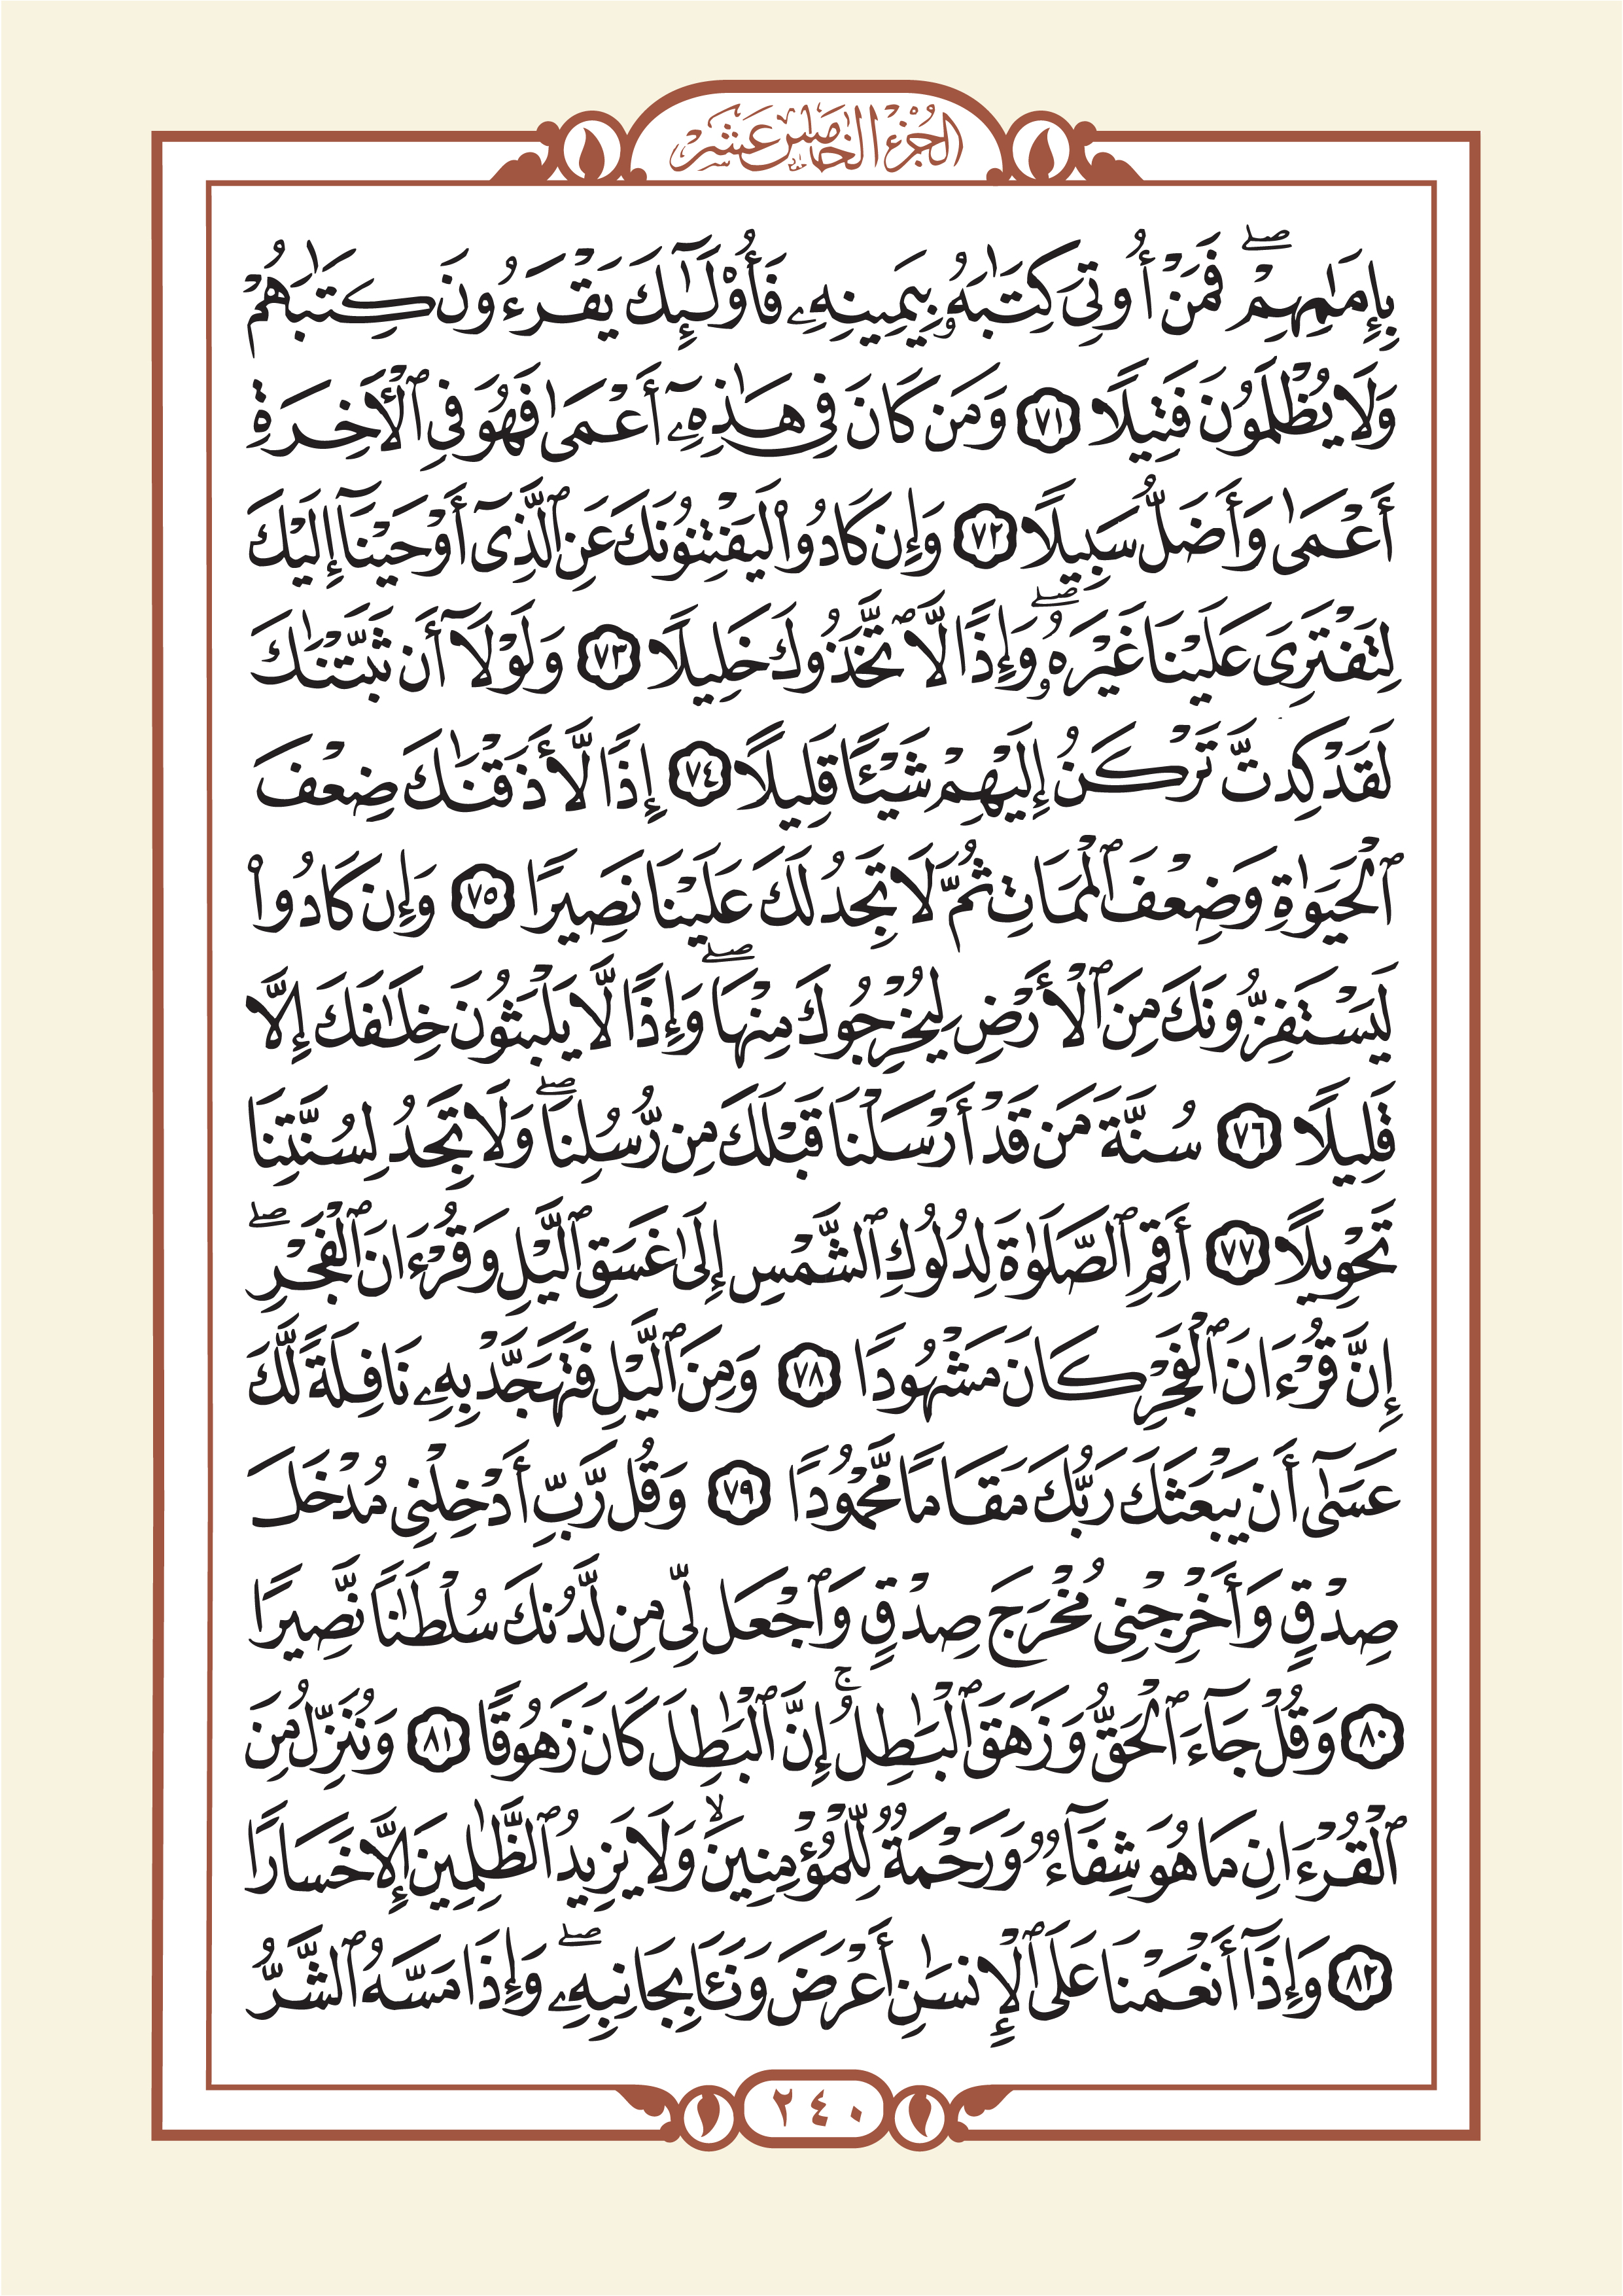 الجزء الخامس عشر
بِإِمَٰمِهِمْ ۖ فَمَنْ أُوتِىَ كِتَٰبَهُۥ بِيَمِينِهِۦ فَأُوْلَٰٓئِكَ يَقْرَءُونَ كِتَٰبَهُمْ
وَلَا يُظْلَمُونَ فَتِيلًا ٧١ وَمَن كَانَ فِى هَٰذِهِۦٓ أَعْمَىٰ فَهُوَ فِى ٱلْأَخِرَةِ
أَعْمَىٰ وَأَضَلُّ سَبِيلًا ٧٢ وَإِن كَادُواْ لَيَفْتِنُونَكَ عَنِ ٱلَّذِىٓ أَوْحَيْنَآ إِلَيْكَ
لِتَفْتَرِىَ عَلَيْنَا غَيْرَهُۥ ۖ وَإِذًا لَّا تَّخَذُوكَ خَلِيلًا ٧٣ وَلَوْلَآ أَن ثَبَّتْنَٰكَ
لَقَدْ كِدتَّ تَرْكَنُ إِلَيْهِمْ شَيْـًٔا قَلِيلًا ٧٤ إِذًا لَّأَذَقْنَٰكَ ضِعْفَ
ٱلْحَيَوٰةِ وَضِعْفَ ٱلْمَمَاتِ ثُمَّ لَا تَجِدُ لَكَ عَلَيْنَا نَصِيرًا ٧٥ وَإِن كَادُواْ
لَيَسْتَفِزُّونَكَ مِنَ ٱلْأَرْضِ لِيُخْرِجُوكَ مِنْهَا ۖ وَإِذًا لَّا يَلْبَثُونَ خِلَٰفَكَ إِلَّا
قَلِيلًا ٧٦ سُنَّةَ مَن قَدْ أَرْسَلْنَا قَبْلَكَ مِن رُّسُلِنَا ۖ وَلَا تَجِدُ لِسُنَّتِنَا
تَحْوِيلًا ٧٧ أَقِمِ ٱلصَّلَوٰةَ لِدُلُوكِ ٱلشَّمْسِ إِلَىٰ غَسَقِ ٱلَّيْلِ وَقُرْءَانَ ٱلْفَجْرِ ۖ
إِنَّ قُرْءَانَ ٱلْفَجْرِ كَانَ مَشْهُودًا ٧٨ وَمِنَ ٱلَّيْلِ فَتَهَجَّدْ بِهِۦ نَافِلَةً لَّكَ
عَسَىٰٓ أَن يَبْعَثَكَ رَبُّكَ مَقَامًا مَّحْمُودًا ٧٩ وَقُل رَّبِّ أَدْخِلْنِى مُدْخَلَ
صِدْقٍ وَأَخْرِجْنِى مُخْرَجَ صِدْقٍ وَٱجْعَل لِّى مِن لَّدُنكَ سُلْطَٰنًا نَّصِيرًا
٨٠ وَقُلْ جَآءَ ٱلْحَقُّ وَزَهَقَ ٱلْبَٰطِلُ ۚ إِنَّ ٱلْبَٰطِلَ كَانَ زَهُوقًا ٨١ وَنُنَزِّلُ مِنَ
ٱلْقُرْءَانِ مَا هُوَ شِفَآءٌ وَرَحْمَةٌ لِّلْمُؤْمِنِينَ ۙ وَلَا يَزِيدُ ٱلظَّٰلِمِينَ إِلَّا خَسَارًا
٨٢ وَإِذَآ أَنْعَمْنَا عَلَى ٱلْإِنسَٰنِ أَعْرَضَ وَنَـَٔا بِجَانِبِهِۦ ۖ وَإِذَا مَسَّهُ ٱلشَّرُّ
٢٤٠